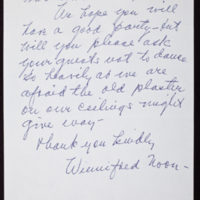 We hope you will
have a good party - but
will you please ask
your guests not to dance
so heavily as we are
afraid the old plaster
on our ceilings might
give way -
Thank you kindly
Winnifred Moon -